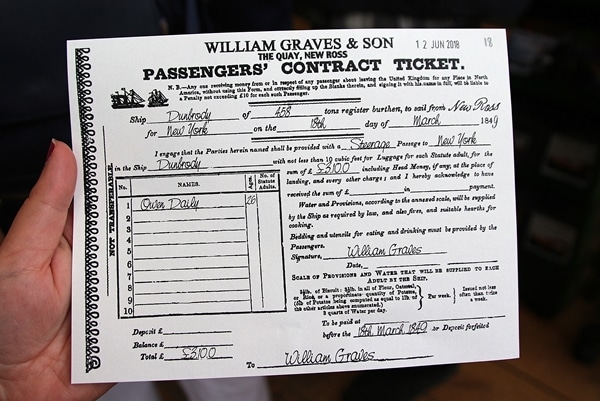 WILLIAM GRAVES & SON
THE QUAY, NEW ROSS
12 JUN 2018
18
PASSENGERS' CONTRACT TICKET.
N. B.—Any one receiving money from or in respect of any passenger about leaving the United Kingdom for any Place in North
America, without using this Form, and correctly filling up the Blanks therein, and signing it with his name in full, will be liable to
a Penalty not exceeding £10 for each such Passenger.
Ship Dunbrody of 458 tons register burthen, to sail from New Ross
for New York on the 18th day of March 1849
I engage that the Parties herein named shall be provided with a Steerage Passage to New York
in the Ship Dunbrody with not less than 10 cubic feet for Luggage for each Statute adult, for the
sum of £ £3.10.0 including Head Money, if any, at the place of
landing, and every other charge; and I hereby acknowledge to have
received the sum of £ in payment.
Water and Provisions, according to the annexed scale, will be supplied
by the Ship as required by law, and also fires, and suitable hearths for
cooking.
Bedding and utensils for eating and drinking must be provided by the
Passengers.
Signature, William Graves
Date,
NOT TRANSFERABLE.
No. NAMES. Ages. No. of Statute Adults.
1 Owen Daily 26
2
3
4
5
6
7
8
9
10
SCALE OF PROVISIONS AND WATER THAT WILL BE SUPPLIED TO EACH
ADULT BY THE SHIP.
of Biscuit; in all of Flour, Oatmeal,
or Rice, or a proportionate quantity of Potatoes,
(5lb. of Potatoes being computed as equal to 1lb. of
the other articles above enumerated.)
3 quarts of Water per day.
Per week.
Issued not less
often than twice
a week.
Deposit £
Balance £
Total £ £3.10.0
To be paid at
before the 18th March 1849 or Deposit forfeited
To William Graves